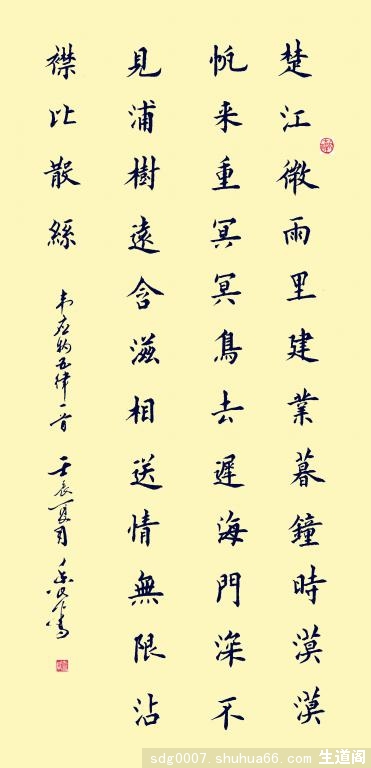 楚江微雨里建業暮鐘時漠漠
帆来重冥冥鳥去遲海門深不
見浦樹遠含滋相送情無限沾
襟比散絲
韦应物五律一首 壬辰夏月
sdg0007.shuhua66.com 生道阁